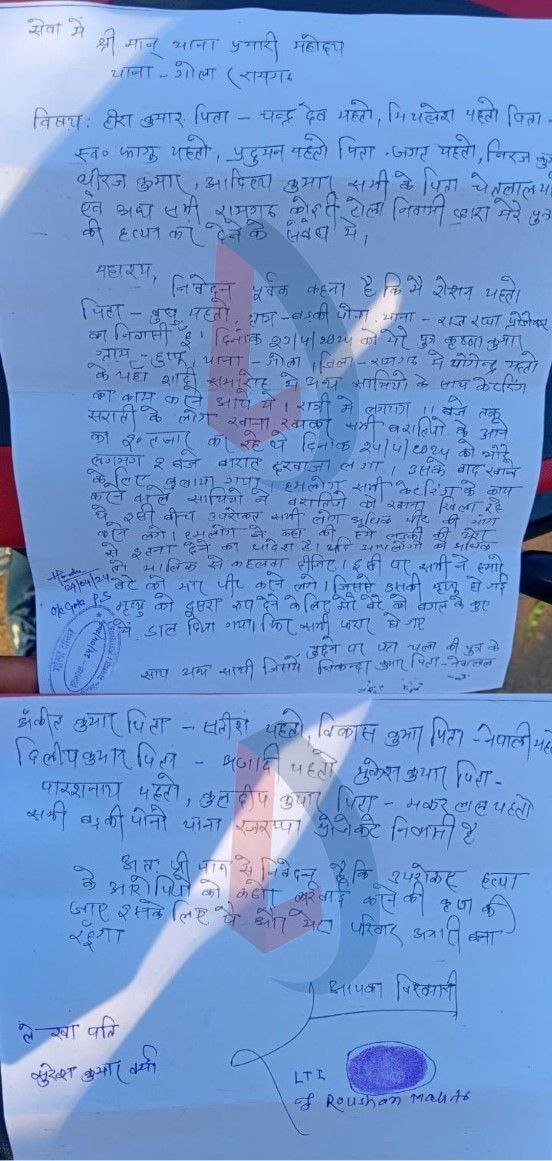 सेवा में
श्री मान् थाना प्रभारी महोदय
थाना - गोला (रामगढ़
विषय: हीरा कुमार पिता - चन्द्र देव महतो, मिथलेश महतो पिता -
स्व० फागु महतो, प्रदुमन महतो पिता - जगत महतो, निरज कु
धीरज कुमार, आदित्य कुमार सभी के पिता चेतलाल
एवं अन्य सभी रामगढ़ कोइरी टोला निवासी द्वारा मेरे पुत्र
की हत्या कर देने के संबंध में,
महाशय,
निवेदन पूर्वक कहना है कि मैं रोशन महतो
पिता - महतो, ग्राम - बड़की पोना, थाना - रजरप्पा प्रोजेक्ट
का निवासी हूँ। दिनांक 23/4/2024 को मेरे पुत्र कृष्णा कुमार
ग्राम - थाना - गोला, जिला - रामगढ़ में योगेन्द्र महतो
के यहाँ शादी समारोह में अन्य साथियों के साथ केटरिंग
का काम करने आये थे। रात्री में लगभग 11 बजे तक
सराती के लोग खाना खाकर सभी बरातियों के आने
का इन्तजार कर रहे थे दिनांक 24/4/2024 को भोरे
लगभग 2 बजे बारात दरवाजा लगा। उसके बाद खाने
के लिए बुलाया गया हमलोग सभी केटरिंग के काम
करने वाले साथियों ने बरातियों को खाना खिला रहे
थे इसी बीच उपरोक्त सभी लोग अधिक मीट की मांग
करने लगे। हमलोग ने कहा की हमें लड़की की
से इतना देने का आदेश है। यदि आपलोगों को अधिक
ले मालिक से कहलवा दीजिए। इसी पर सभी ने हमारे
बेटे को मार पीट करने लगे। जिससे उसकी मृत्यु हो गई
मृत्यु को दुसरा रूप देने के लिए मेरे बेटे को बगल के कुएं
में डाल दिया गया। फिर सभी फरार हो गए
24/04/24
O/c Gola P.S
पुछने पर पता चला की पुत्र के
साथ अन्य साथी जिसमें कुमार पिता -
अंकित कुमार पिता - सतीश महतो, विकास कुमार पिता - नेपाली महतो
दिलीप कुमार पिता - महतो मुकेश कुमार पिता -
पारशनाथ महतो, कुलदीप कुमार पिता - महतो
सभी बड़की पोना थाना रजरप्पा प्रोजेक्ट निवासी है
अतः श्री मान से निवेदन है कि उपरोक्त हत्या
के आरोपियों को कड़ी करवाई करने की कृपा की
जाए इसके लिए मैं और मेरा परिवार आभारी बना
रहूँगा
आपका विश्वासी
लेखा पति
सुरेश कुमार वर्मा
LTI
of Roushan Mahto